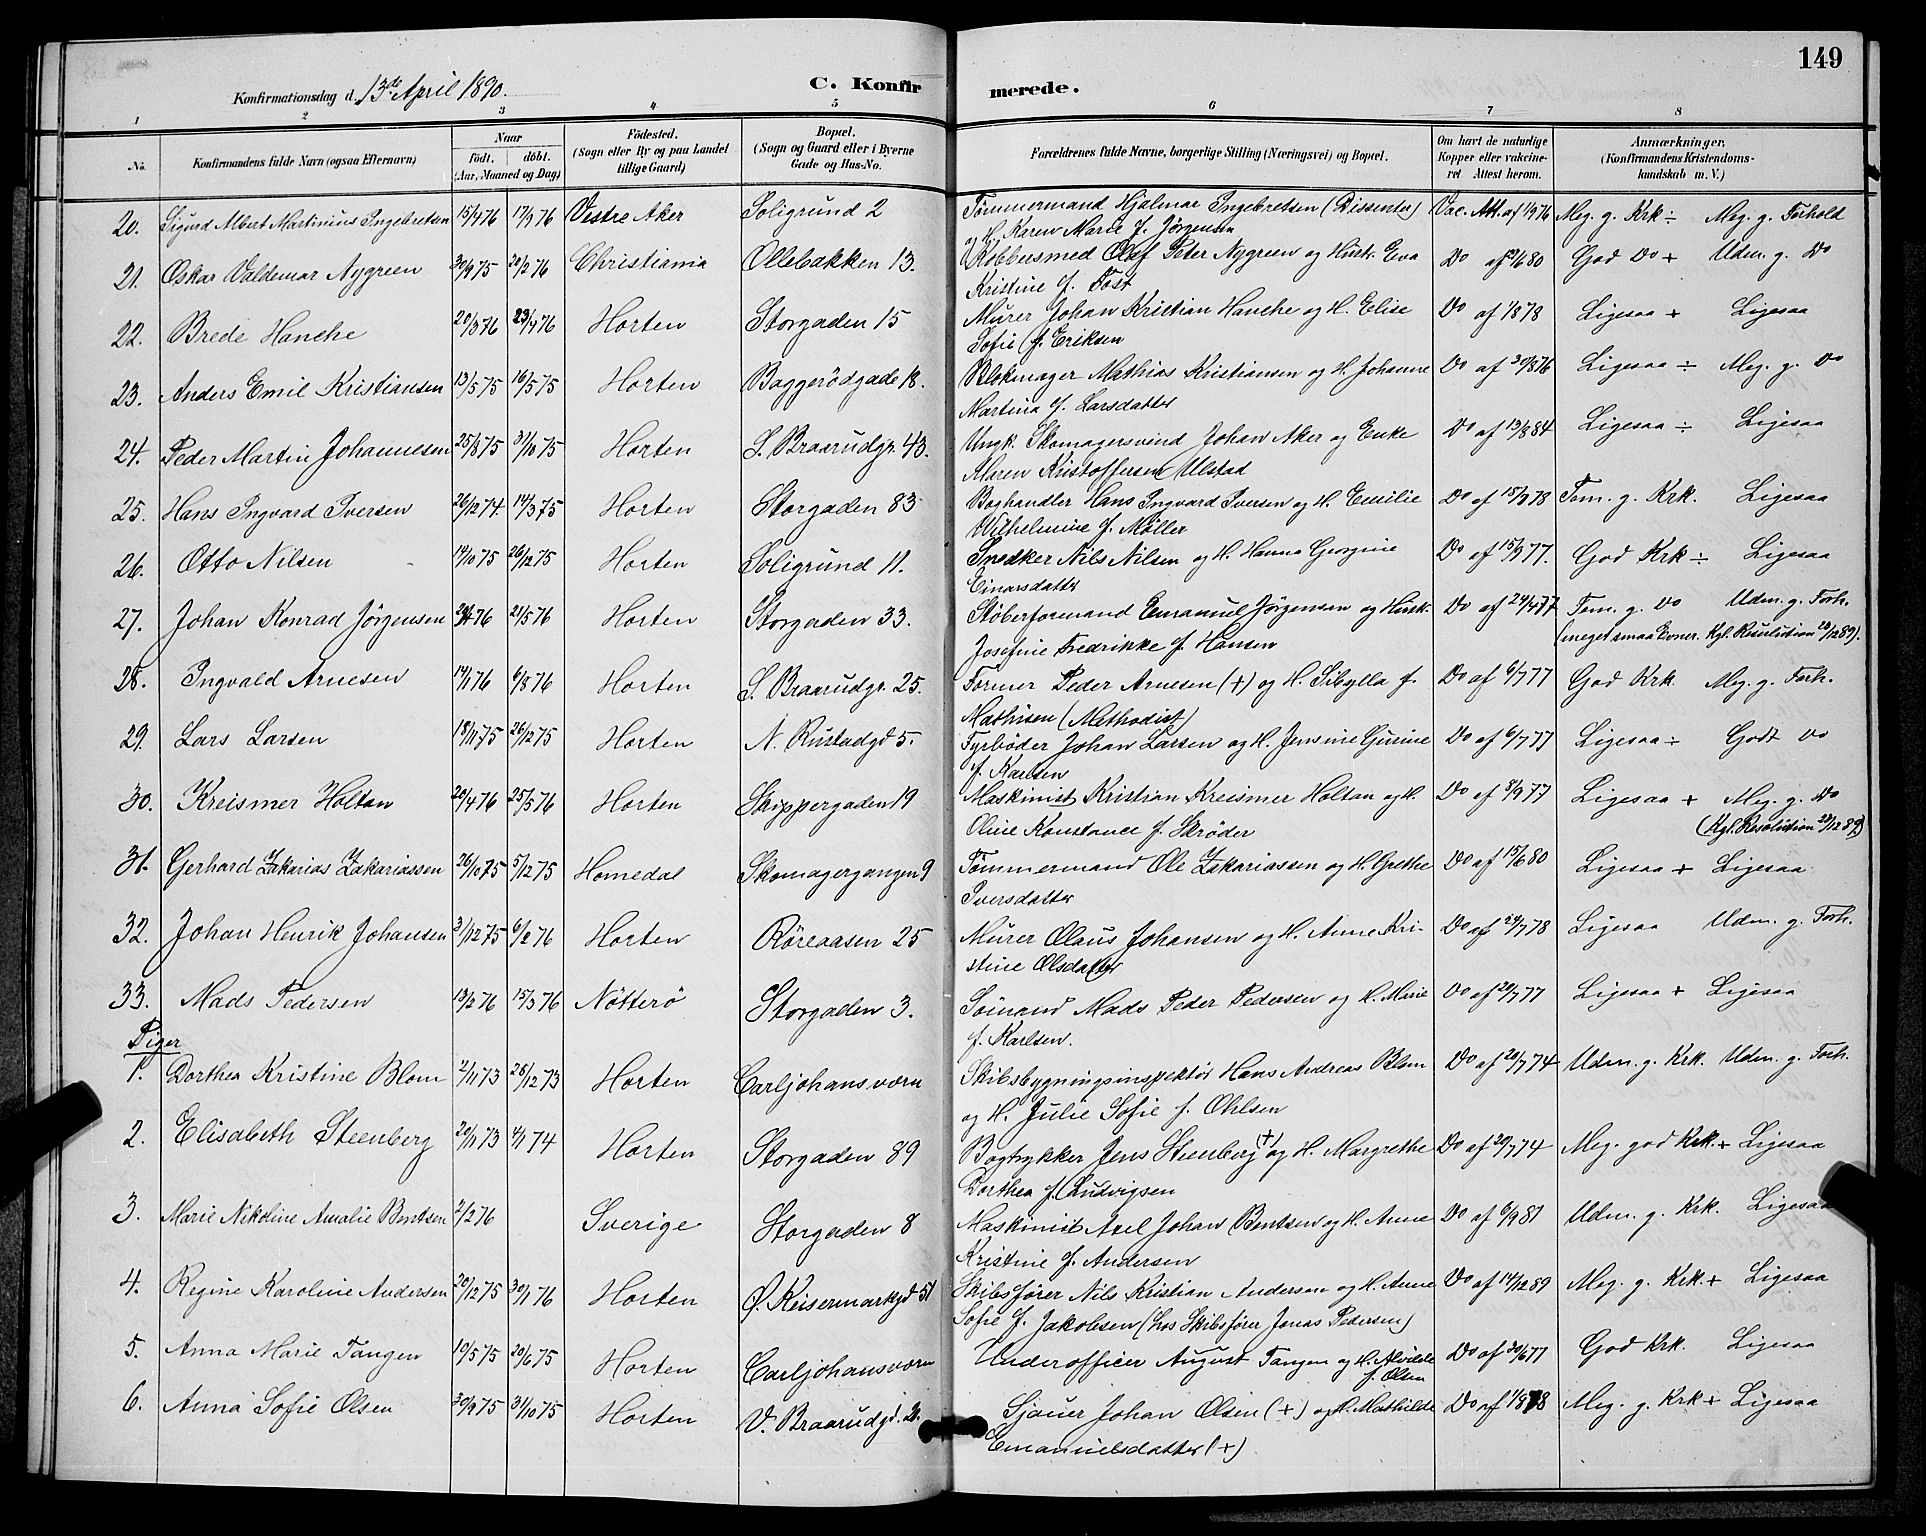 149
Konfirmationsdag d. 13de April 1890.
C. Konfirmerede.
1 2 3 4 5 6 7 8
No. Konfirmandens fulde Navn (ogsaa Efternavn) Naar födt. döbt. (Aar, Maaned og Dag) Födested. (Sogn eller By og paa Landet tillige Gaard) Bopæl. (Sogn og Gaard eller i Byerne Gade og Hus-No. Forældrenes fulde Navne, borgerlige Stilling (Næringsvei) og Bopæl. Om havt de naturlige Kopper eller vakcineret Attest herom. Anmærkninger. (Konfirmandens Kristendomskundskab m. V.)
20. Sigurd Albert Martinius Ingebretsen 15/4 76 17/9 76 Vestre Aker Soligrund 2 Tømmermand Hjalmar Ingebretsen (Dissenter) Vac. Att. af 1/9 76 Meg. g. Krk ÷ Meg. g. Forhold
og H. Karen Marie f. Jørgensen
21. Oskar Valdemar Nygreen 30/9 75 20/2 76 Christiania Ollebakken 13. Kobbersmed Olaf Peter Nygreen og Hustr. Eva Do af /6 80 God Do + Udm. g. Do
Kristine f. Tost
22. Brede Hanche 20/3 76 23/4 76 Horten Storgaden 15 Murer Johan Kristian Hanche og H. Elise Do af 1/8 78 Ligesaa + Ligesaa
Sofie f. Eriksen
23. Anders Emil Kristiansen 13/5 75 16/5 75 Horten Baggerödgade 18. Blokmager Mathias Kristiansen og H. Johanne Do af 30/8 76 Ligesaa ÷ Meg. g. Do
Martina f. Larsdatter
24. Peder Martin Johannesen 25/8 75 31/10 75 Horten S. Braarudgr. 43. Ungk. Skomagersvend Johan Aker og Enke Do af 13/8 84 Ligesaa ÷ Ligesaa
Maren Kristoffersen Ulstad
25. Hans Ingvard Iversen 26/12 74. 14/3 75 Horten Storgaden 83 Boghandler Hans Ingvard Iversen og H. Emilie Do af 15/9 78 Tem. g. Krk. Ligesaa
Wilhelmine f. Møller
26. Otto Nilsen 14/10 75 26/12 75 Horten Soligrund 11. Snedker Nils Nilsen og H. Hanna Georgine Do af 15/9 77. God Krk ÷ Ligesaa
Einarsdatter
27. Johan Konrad Jörgensen 76 21/5 76 Horten Storgaden 33. Støberformand Emanuel Jørgensen og Hustr. Do af 24/4 77 Tem. g. Do Udm. g. Forh.
Josefine Fredrikke f. Hansen (meget smaa Evner. Kgl. Resolution 28/12 89).
28. Ingvald Arnesen 14/1 76 6/8 76 Horten S. Braarudgr. 25. Former Peder Arnesen (+) og H. Sibylla f. Do af 6/7 77 God Krk. Meg. g. Forh.
Mathisen (Methodist)
29. Lars Larsen 18/11 75 26/12 75 Horten N. Rustadgd 5. Fyrbøder Johan Larsen og H. Jensine Gurine Do af 6/7 77 Ligesaa ÷ Godt Do
f. Karlsen
30. Kreismer Holtan 20/4 76 25/5 76 Horten Skippergaden 19 Maskinist Kristian Kreismer Holtan og H. Do af 8/9 77 Ligesaa + Meg. g. Do
Oline Konstance f. Skrøder (Kgl. Resolution 28/12 89)
31. Gerhard Zakarias Zakariassen 26/10 75 5/12 75 Homedal Skomagergangen 9 Tømmermand Ole Zakariassen og H. Grethe Do af 15/6 80 Ligesaa + Ligesaa
Iversdatter
32. Johan Henrik Johansen 3/12 75 6/2 76 Horten Röreaasen 25 Murer Olaus Johansen og H. Anne Kri- Do af 24/7 78 Ligesaa Udm. g. Forh.
stine Olsdatter
33. Mads Pedersen 13/2 76 15/3 76 Nötterö Storgaden 3. Sømand Mads Peder Pedersen og H. Marie Do af 20/7 77 Ligesaa + Ligesaa
f. Karlsen.
Piger
1. Dorthea Kristine Blom 2/11 73 28/12 73 Horten Carljohansværn Skibsbygningsinspektör Hans Andreas Blom Do af 20/7 74 Udm. g. Krk. Udm. g. Forh.
og H. Julie Sofie f. Ohlsen
2. Elisabeth Steenberg 20/11 73 4/1 74 Horten Storgaden 89 Bogtrykker Jens Steenberg (+) og H. Margrethe Do af 20/7 74 Meg. god Krk. + Ligesaa
Dorthea f. Ludvigsen
3. Marie Nikoline Amalie Bentsen 2/2 76 Sverige Storgaden 8 Maskinist Axel Johan Bentsen og H. Anne Do af 6/9 81 Udm. g. Krk. Ligesaa
Kristine f. Andersen
4. Regine Karoline Andersen 20/12 75 30/1 76 Horten Ø. Keisermarkgd 51 Skibsfører Nils Kristian Andersen og H. Anne Do af 14/12 89 Meg. g. Krk. + Ligesaa
Sofie f. Jakobsen (hos Skibsfører Jonas Pedersen)
5. Anna Marie Tangen 19/5 75 20/6 75 Horten Carljohansværn Underofficer August Tangen og H. Alvilde Do af 30/6 77 God Krk. Ligesaa
f. Olsen
6. Anna Sofie Olsen 30/9 75 31/10 75 Horten V. Braarudgd. Sjauer Johan Olsen (+) og H. Mathilde Do af 1/8 78 Meg. g. Krk + Ligesaa
Emanuelsdatter (+).